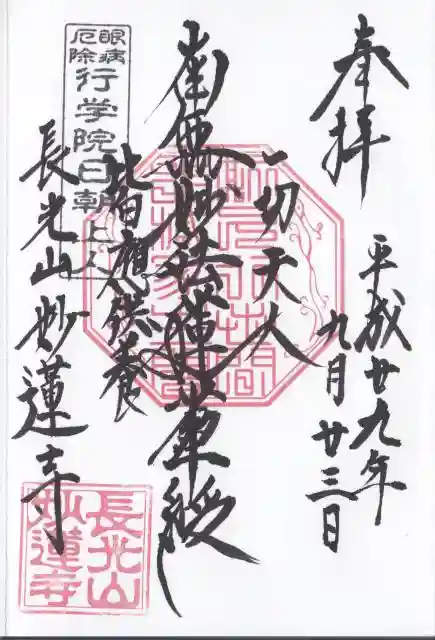 奉拝
平成廿九年
九月廿三日
一切天人
南無妙法蓮華経
皆応供養
眼病
厄除
行学院日朝上人
長光山妙蓮寺
長光山
妙蓮寺